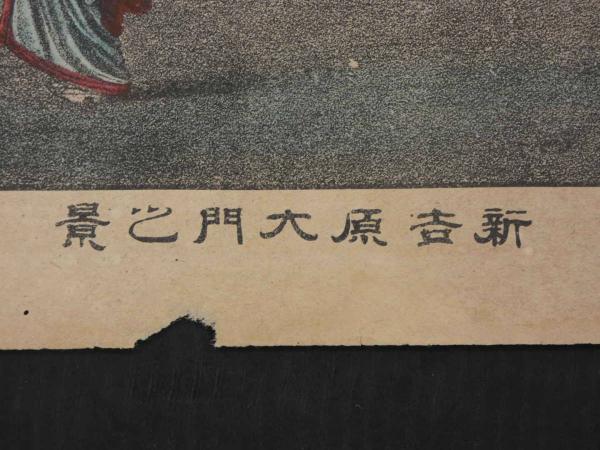 新吉原大門之景